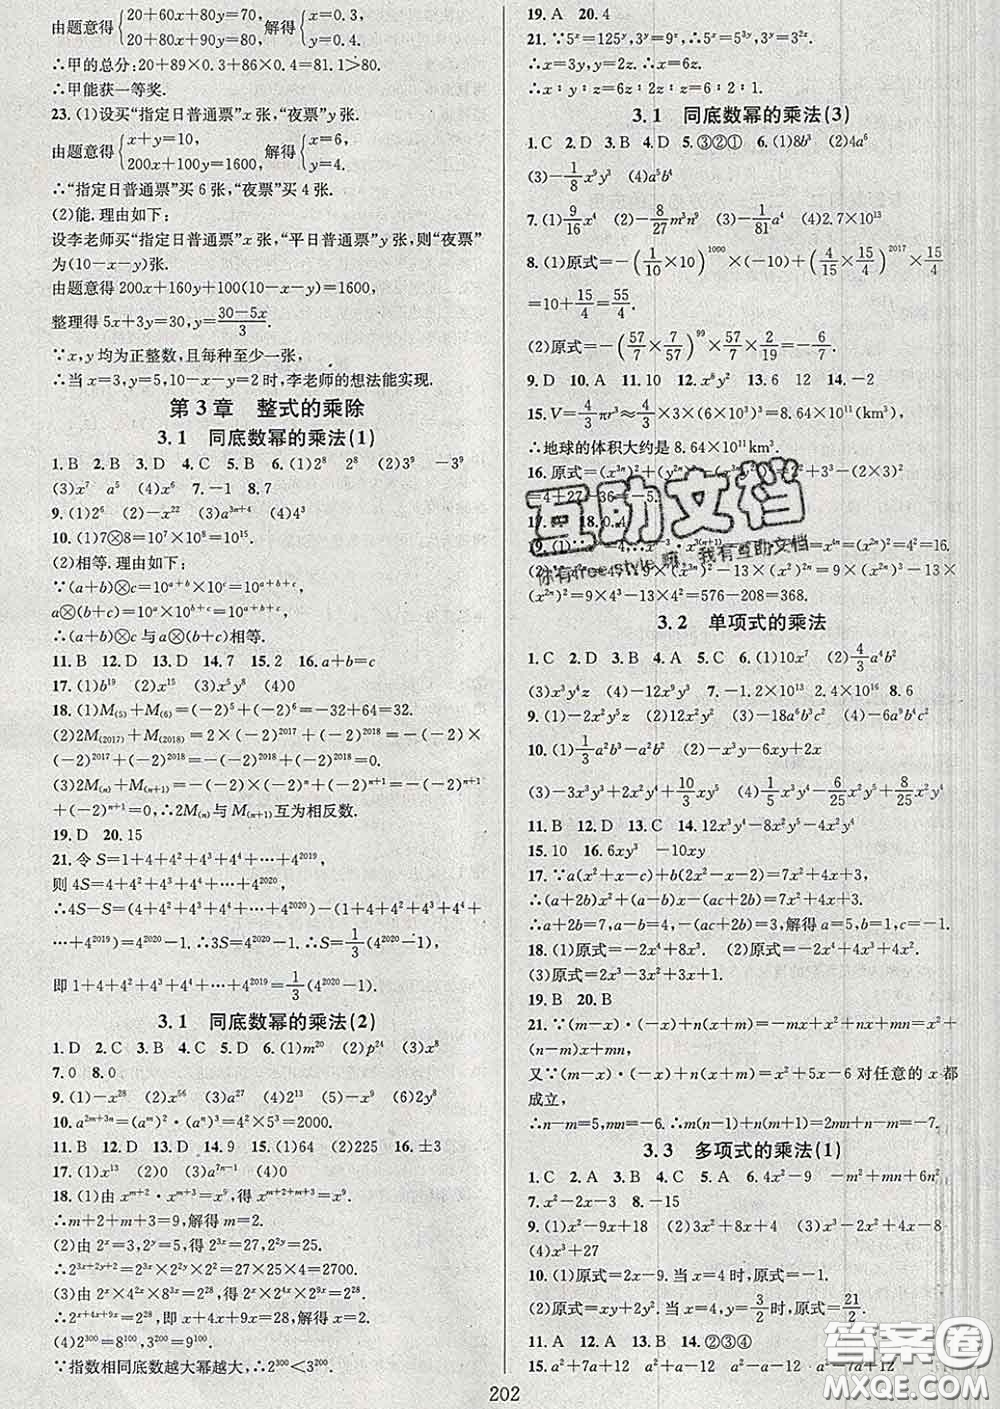 由题意得{20+60x+80y=70, 20+80x+90y=80, 解得{x=0.3, y=0.4.
∴甲的总分:20+89×0.3+86×0.4=81.1>80.
∴甲能获一等奖.
23. (1)设买“指定日普通票”x张,“夜票”y张.
由题意得{x+y=10, 200x+100y=1600, 解得{x=6, y=4.
∴“指定日普通票”买6张,“夜票”买4张.
(2)能.理由如下:
设李老师买“指定日普通票”x张,“平日普通票”y张,则“夜票”
为(10-x-y)张.
由题意得200x+160y+100(10-x-y)=1600,
整理得5x+3y=30,y=(30-5x)/3.
∵x,y均为正整数,且每种至少一张,
∴当x=3,y=5,10-x-y=2时,李老师的想法能实现.
第3章 整式的乘除
3.1 同底数幂的乘法(1)
1. B 2. B 3. D 4. C 5. B 6. (1)2⁸ 2⁸ (2)3⁹ -3⁹
(3)x⁷ a⁵ (4)0 7. -1 8. 7
9. (1)2⁶ (2)-x²² (3)a³ⁿ⁺⁴ (4)4³
10. (1)7⊗8=10⁷×10⁸=10¹⁵.
(2)相等.理由如下:
∵(a+b)⊗c=10ᵃ⁺ᵇ×10ᶜ=10ᵃ⁺ᵇ⁺ᶜ,
a⊗(b+c)=10ᵃ×10ᵇ⁺ᶜ=10ᵃ⁺ᵇ⁺ᶜ,
∴(a+b)⊗c与a⊗(b+c)相等.
11. B 12. D 13. D 14. 7 15. 2 16. a+b=c
17. (1)b¹⁹ (2)x¹⁵ (3)5x⁹y (4)0
18. (1)M₍₅₎+M₍₆₎=(-2)⁵+(-2)⁶=-32+64=32.
(2)2M₍₂₀₁₇₎+M₍₂₀₁₈₎=2×(-2)²⁰¹⁷+(-2)²⁰¹⁸=-(-2)×
(-2)²⁰¹⁷+(-2)²⁰¹⁸=-(-2)²⁰¹⁸+(-2)²⁰¹⁸=0.
(3)2M₍ₙ₎+M₍ₙ₊₁₎=-(-2)×(-2)ⁿ+(-2)ⁿ⁺¹=-(-2)ⁿ⁺¹
+(-2)ⁿ⁺¹=0,∴2M₍ₙ₎与M₍ₙ₊₁₎互为相反数.
19. D 20. 15
21. 令S=1+4+4²+4³+4⁴+…+4²⁰¹⁹,
则4S=4+4²+4³+4⁴+…+4²⁰²⁰,
∴4S-S=(4+4²+4³+4⁴+…+4²⁰²⁰)-(1+4+4²+4³+4⁴+
…+4²⁰¹⁹)=4²⁰²⁰-1.∴3S=4²⁰²⁰-1,∴S=1/3(4²⁰²⁰-1),
即1+4+4²+4³+4⁴+…+4²⁰¹⁹=1/3(4²⁰²⁰-1).
3.1 同底数幂的乘法(2)
1. D 2. C 3. B 4. D 5. C 6. (1)m²⁰ (2)p²⁴ (3)x⁸
7. 0 8. 0
9. (1)-x²⁸ (2)x⁵⁶ (3)a⁸ (4)2¹³ (5)-x⁹ (6)2y⁸
10. a²ᵐ⁺³ⁿ=(aᵐ)²·(aⁿ)³=4²×5³=2000.
11. B 12. D 13. D 14. 9 15. (1)64 (2)225 16. ±3
17. (1)x¹³ (2)0 (3)a⁷ⁿ⁻¹ (4)0
18. (1)由xᵐ⁺²·xᵐ⁺³=x⁹,得x²ᵐ⁺²⁺³=x⁹.
∴m+2+m+3=9,解得m=2.
(2)由2ˣ=3,2ʸ=5,得2³ˣ=27,2²ʸ=25.
∴2³ˣ⁺²ʸ⁺²=2³ˣ×2²ʸ×2²=27×25×4=2700.
(3)由2ˣ×4²ˣ×8³ˣ=2²⁸,得2ˣ×2⁴ˣ×2⁹ˣ=2²⁸.
∴2ˣ⁺⁴ˣ⁺⁹ˣ=2²⁸,即x+4x+9x=28,解得x=2.
(4)2³⁰⁰=8¹⁰⁰,3²⁰⁰=9¹⁰⁰.
∵指数相同底数越大幂越大,∴2³⁰⁰<3²⁰⁰.
19. A 20. 4
21. ∵5ˣ=125ʸ,3ʸ=9ᶻ,∴5ˣ=5³ʸ,3ʸ=3²ᶻ.
∴x=3y,y=2z.∴x=6z.
∴x∶y∶z=6z∶2z∶z=6∶2∶1.
3.1 同底数幂的乘法(3)
1. C 2. D 3. B 4. D 5. ③②① 6. (1)8b³ (2)4a⁶
(3)-1/8x⁹y³ (4)a⁵b⁴
7. (1)9/16x⁴ (2)-8/27m³n⁹ (3)-1/81a⁴ (4)2.7×10¹³
8. (1)原式=-(1/10×10)¹⁰⁰⁰×(-10)+(4/15×15/4)²⁰¹⁷×15/4
=10+15/4=55/4.
(2)原式=-(57/7×7/57)⁹⁹×57/7×2/19=-6/7.
9. D 10. A 11. A 12. x⁶y² 13. 6 12 14. -2
15. V=4/3πr³≈4/3×3×(6×10³)³=8.64×10¹¹(km³),
∴地球的体积大约是8.64×10¹¹km³.
16. 原式=(x³ⁿ)²+(y²ⁿ)³-(x³ⁿ·y²ⁿ)²=2²+3³-(2×3)²
=4+27-36=-5.
互助文档
你有free style嘛,我有互助文档
(x²ⁿ)²=9×4³-13×4²=576-208=368.
3.2 单项式的乘法
1. C 2. D 3. A 4. D 5. B 6. (1)10x⁷ (2)4/3a⁴b²
(3)x³y⁴z (4)-12x⁹y³ 7. -1.2×10¹³ 8. 2.4×10¹⁶ 8. 6
9. (1)-2x²y⁵z (2)12x²y³ (3)-18a⁶b³c² (4)-6a⁹b⁴c²
10. (1)1/3a²b³-a²b² (2)-3x²y-6xy+2x
(3)-3x³y³-4x²y⁴+10/3xy⁵ (4)1/5x³y³-4/25x²y⁵+8/25x²y⁴
11. B 12. B 13. D 14. 12x³y⁴-8x⁴y²-4x²y²
15. 10 16. 6xy³ -10xy
17. ∵a(x²+x-c)+b(2x²-x-2)=7x²+4x+3,
∴(a+2b)x²+(a-b)x-(ac+2b)=7x²+4x+3.
∴a+2b=7,a-b=4,-(ac+2b)=3,解得a=5,b=1,c=-1.
18. (1)原式=-2x⁴+8x³. (2)原式=-2x⁴+4x³+4x².
(3)原式=2x³-3x²+3x+1.
19. B 20. B
21. ∵(m-x)·(-x+n)(x+m)=-mx+x²+mn-nx=x²+
(n-m)x+mn,
又∵(m-x)·(-x+n)(x+m)=x²+5x-6对任意的x都
成立,
∴n-m=5,mn=-6.∴m(n-1)+n(m+1)=n-m+2mn=-7.
3.3 多项式的乘法(1)
1. C 2. A 3. B 4. A 5. A 6. 4x²-9 -m²+mn+6n²
7. x²-2x-3 8. -15
9. (1)x²-9x+18 (2)2x²+3xy-2y² (3)3x²+2x-8
(4)x³+27
10. (1)原式=2x-9.当x=4时,原式=-1.
(2)原式=xy+2y².当x=4,y=3/2时,原式=21/2.
11. A 12. B 13. B 14. ②③④
15. a²+7a+12 a²+a-12 a²-a-12 a²-7a+12
202
答案圈
MXQE.COM